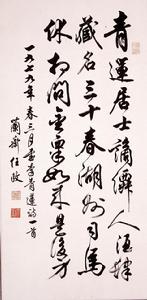 青蓮居士謫僊人酒肆
藏名三十春湖州司馬
何須問金粟如來是後身
一九七九年春三月書李青蓮詩一首
蘭齋任政